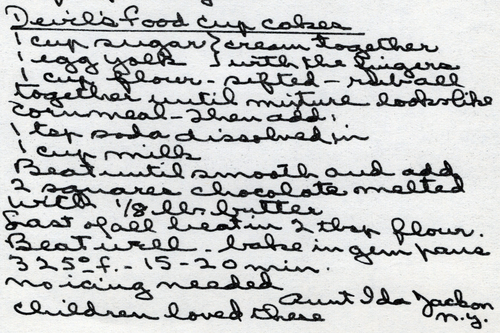 Devil's food cup cakes
1 cup sugar } cream together
1 egg yolk } with the fingers
1 cup flour - sifted - rub all
together until mixture looks like
cornmeal - Then add:
1 tsp soda dissolved in
1 cup milk
Beat until smooth and add
2 squares chocolate melted
with 1/8 lb. butter
Last of all beat in 2 tbsp flour.
Beat well - bake in gem pans
325° f. - 15-20 min.
no icing needed
Aunt Ida Jackson
children loved these N.Y.